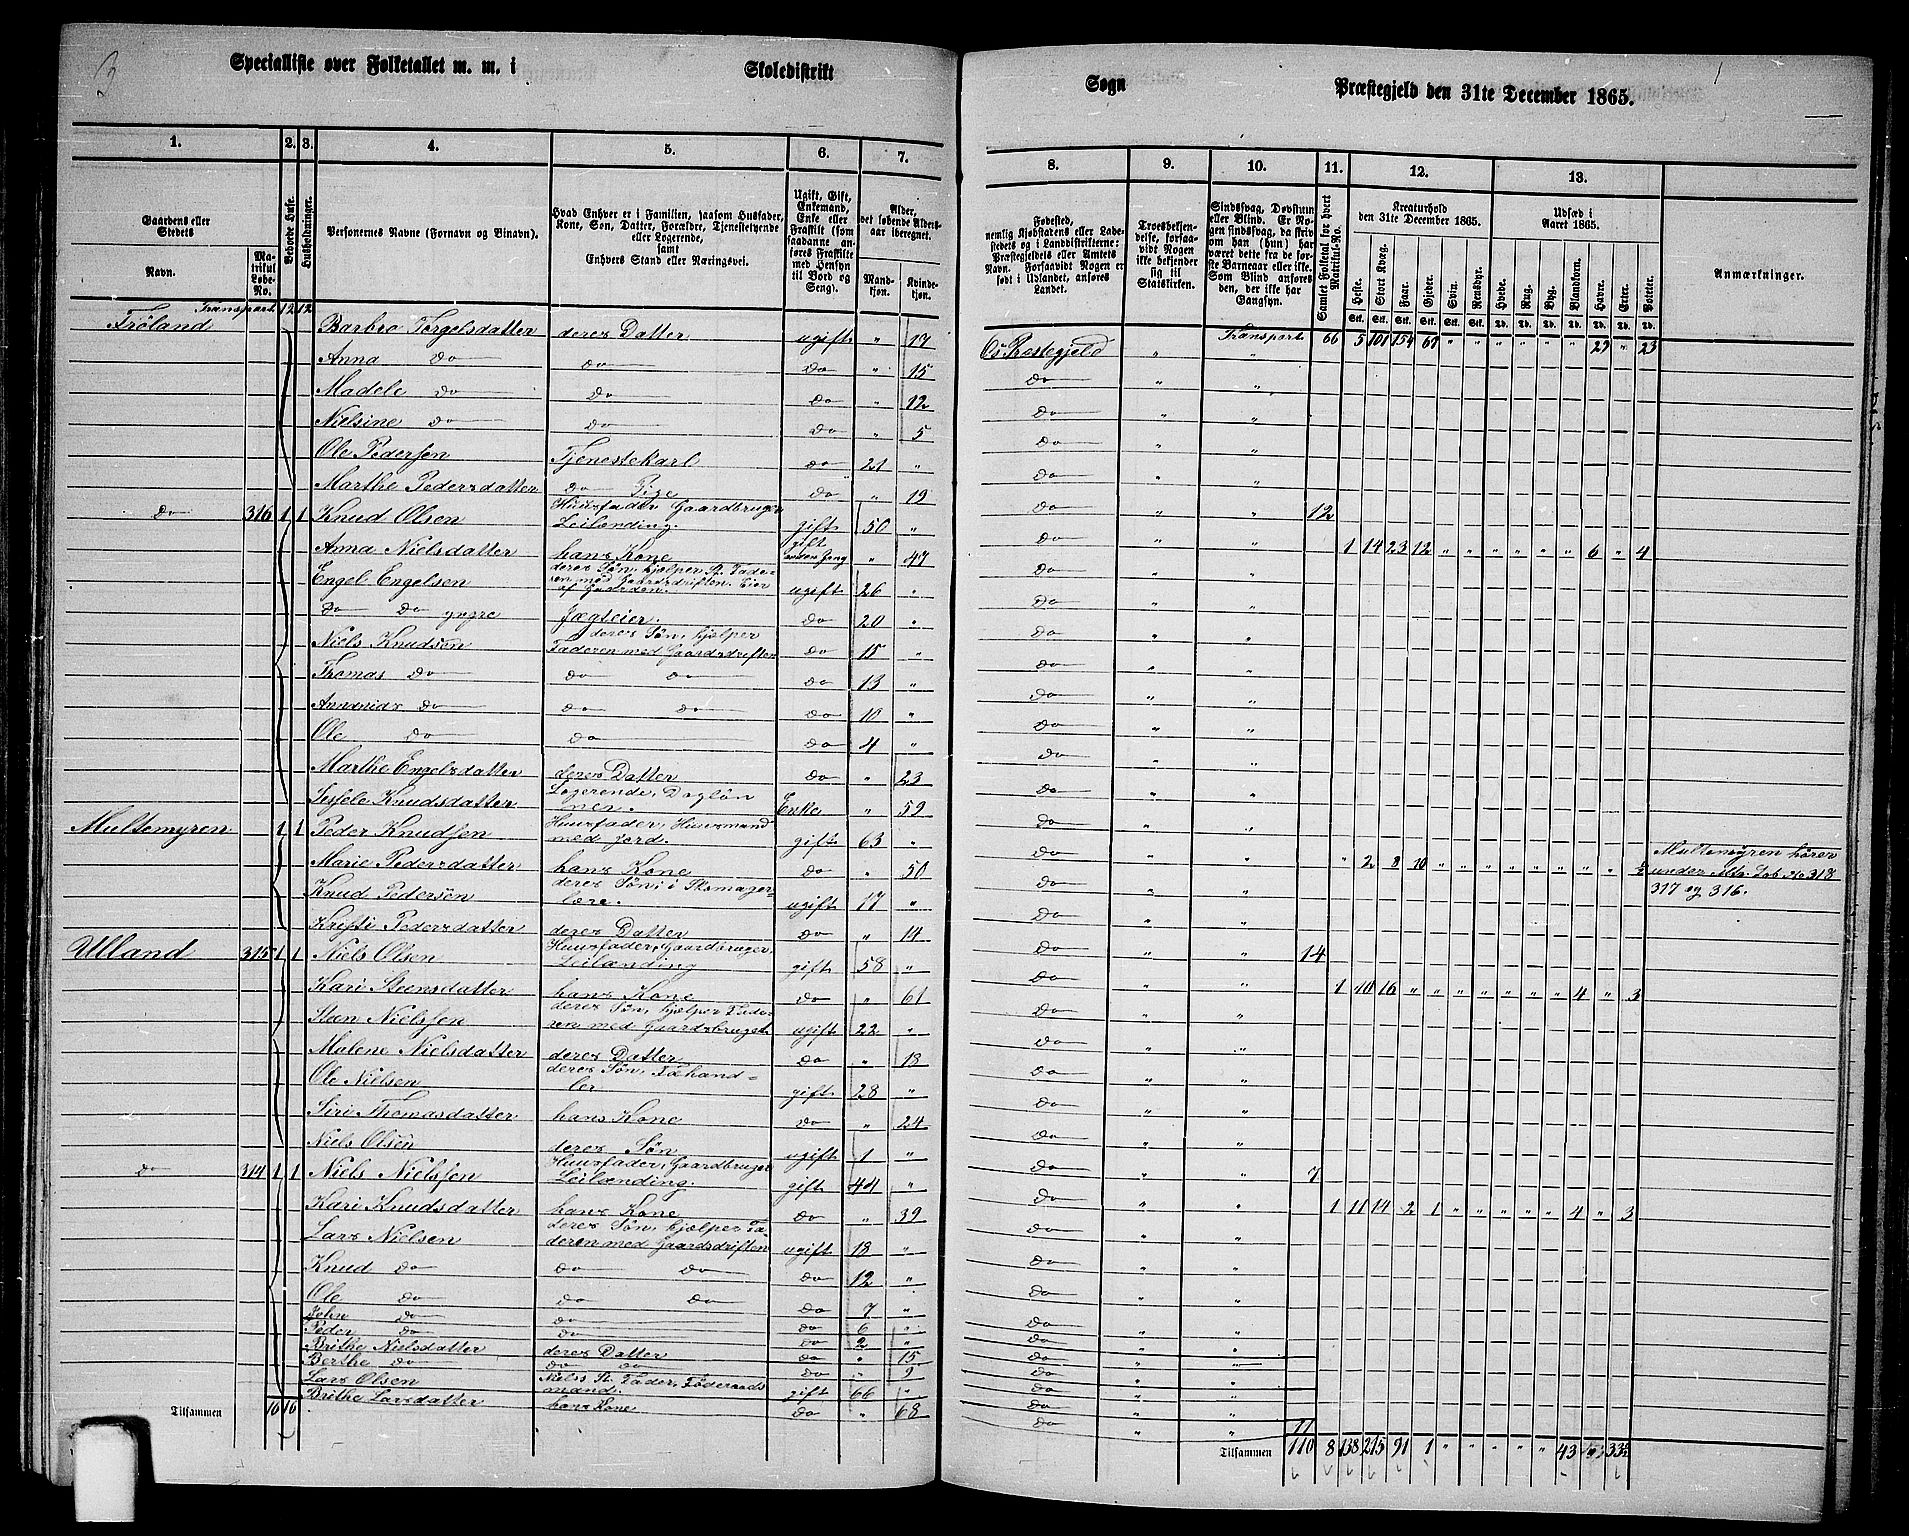 3
Specialliste over Folketallet m. m. i Skoledistrikt Sogn Præstegjeld den 31te December 1865.
1. 2. 3. 4. 5. 6. 7. 8. 9. 10. 11. 12. 13.
Gaardens eller Stedets
Navn.
Matrikul Løbe-No.
Beboede Huse.
Husholdninger.
Personernes Navne (Fornavn og Binavn).
Hvad Enhver er i Familien, saasom Husfader, Kone, Søn, Datter, Forældre, Tjenestetyende eller Logerende, samt Enhvers Stand eller Næringsvei.
Ugift, Gift, Enkemand, Enke eller Fraskilt (som saadanne anføres Fraskilte med Hensyn til Bord og Seng).
Alder, det løbende Aldersaar iberegnet.
Mandkjøn. Kvindekjøn.
Fødested, nemlig Kjøbstadens eller Ladestedets og i Landdistrikterne: Præstegjeldets eller Amtets Navn. Forsaavidt Nogen er født i Udlandet, anføres Landet.
Troesbekjendelse, forsaavidt Nogen ikke bekjender sig til Statskirken.
Sindssvag, Døvstum eller Blind. Er Nogen sindssvag, da skrives om han (hun) har været dette fra de første Barneaar eller ikke. Som Blind anføres den, der ikke har Gangsyn.
Samlet Folketal for hvert Matrikul-No.
Kreaturhold den 31te December 1865.
Heste. Stort Kvæg. Faar. Gjeder. Svin. Rensdyr.
Stk. Stk. Stk. Stk. Stk. Stk.
Udsæd i Aaret 1865.
Hvede. Rug. Byg. Blandkorn. Havre. Erter. Poteter.
Td. Td. Td. Td. Td. Td. Td.
Anmærkninger.
Transport 12 12 Transport 66 5 101 154 67 " " " " " " 29 " 23
Tröland Barbro Torgelsdatter deres Datter ugift " 17 Os Præstegjeld " "
Anna do do do " 15 do " "
Madele do do do " 12 do " "
Nielsine do do do " 5 do " "
Ole Pedersen Tjenestekarl do 21 " do " "
Marthe Pedersdatter do Pige do " 19 do " " 12
do 316 1 1 Knud Olsen Huusfader Gaardbruger Leilænding. gift 50 " do " " 1 14 23 12 " " " " " " 6 " 4
Anna Nielsdatter hans Kone gift anden Gang " 47 do " "
Engel Engelsen deres Søn, hjælper St. Faderen med Gaardsdriften. Eier af Gaarden. ugift 26 " do " "
do do yngre Jægteier. do 20 " do " "
Niels Knudsen deres Søn, hjælper Faderen med Gaardsdriften do 15 " do " "
Thomas do do do do 13 " do " "
Annanias do do do do 10 " do " "
Ole do do do 4 " do " "
Marthe Engelsdatter deres Datter do " 23 do " "
Sesfele Knudsdatter Logerende, Daglønner. Enke " 59 do " "
Multemyren 1 1 Peder Knudsen Huusfader, Huusmand med Jord. gift 63 " do " " " 2 8 10 " " " " " " " " ½ Multemyren hører
Marie Pedersdatter hans Kone do " 50 do " " under Mtr. Løb No 318
Knud Pedersön deres Søn, i Skomagerlære. ugift 17 " do " " 317 og 316.
Kristi Pedersdatter deres Datter do " 14 do " " 14
Ulland 315 1 1 Niels Olsen Huusfader, Gaardbruger, Leilænding gift 58 " do " " 1 10 16 " " " " " " 4 " 3
Kari Steensdatter hans Kone do " 61 do " "
Sten Nielssen deres Søn, hjælper Faderen med Gaardsbruget ugift 22 " do " "
Malene Nielsdatter deres Datter do " 18 do " "
Ole Nielsen deres Søn, Fæhandler gift 28 " do " "
Siri Thomasdatter hans Kone do " 24 do " "
Niels Olsen deres Søn ugift 1 " do " " 7
do 314 1 1 Niels Nielssen Huusfader, Gaardbruger Leilænding. gift 44 " do " " 1 11 14 2 1 " " " " 4 " 3
Kari Knudsdatter hans Kone do " 39 do " "
Lars Nielsen deres Søn, hjælper Faderen med Gaardsdriften ugift 18 " do " "
Knud do do do do 12 " do " "
Ole do do do do 7 " do " "
John do do do 6 " do " "
Peder do do do 2 " do " "
Brithe Nielsdatter deres Datter do " 15 do " "
Berthe do do do do " 9 do " "
Lars Olsen Niels's St. Fader, Føderaadsmand. gift 66 " do " "
Brithe Larsdatter hans Kone do " 68 do " " 11
Tilsammen 16 16 Tilsammen 110 8 138 215 91 1 " " " " 43 33½